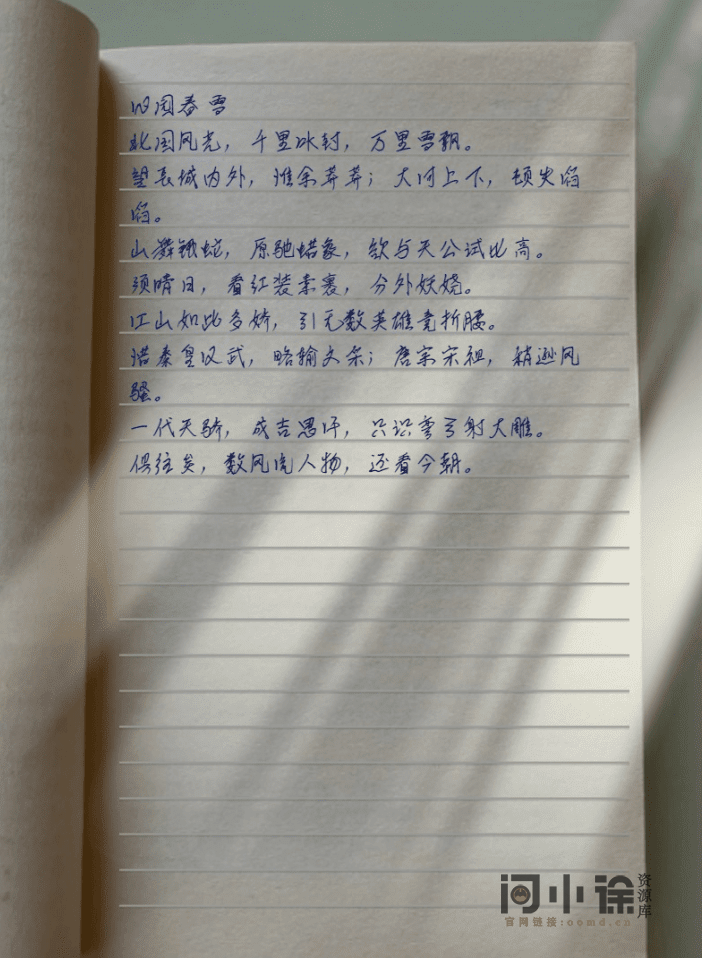 沁园春雪
北国风光，千里冰封，万里雪飘。
望长城内外，惟余莽莽；大河上下，顿失滔
滔。
山舞银蛇，原驰蜡象，欲与天公试比高。
须晴日，看红装素裹，分外妖娆。
江山如此多娇，引无数英雄竞折腰。
惜秦皇汉武，略输文采；唐宗宋祖，稍逊风
骚。
一代天骄，成吉思汗，只识弯弓射大雕。
俱往矣，数风流人物，还看今朝。
问小徐资源库
官网链接:oomd.cn